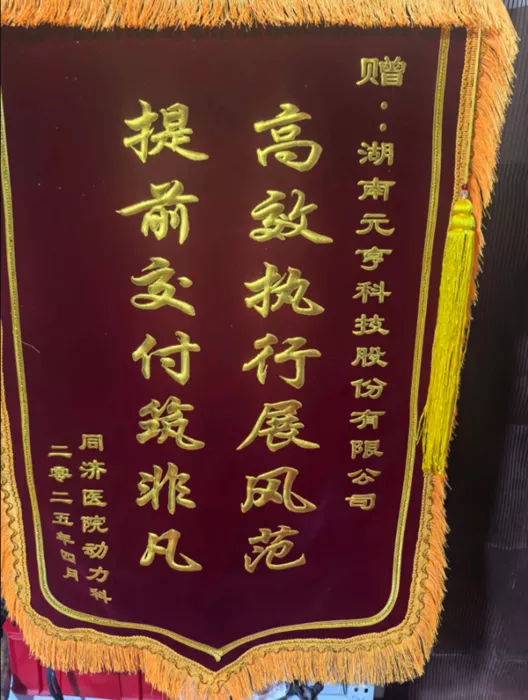 赠：湖南元亨科技股份有限公司
高效执行展风范
提前交付筑非凡
同济医院动力科
二零二五年四月